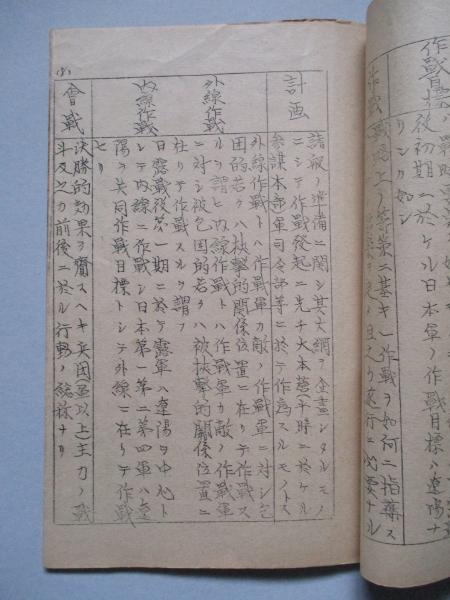 作戰目標
役初期ニ於ケル日本軍ノ作戰目標ハ遼陽ナ
リシカ如シ
作戰戰略上ノ要求ニ基キ一作戰ヲ如何ニ指導ス
計画
諸般ノ準備ニ関シ其大綱ヲ企畫シタルモノ
ニシテ作戰發起ニ先チ大本營(平時ニ於ケル
参謀本部軍司令部等ニ於テ作為スルモノトス
外線作戰
内線作戰
外線作戰トハ作戰軍カ敵ノ作戰軍ニ対シ包
囲的若クハ挾撃的関係位置ニ在リテ作戰ス
ルヲ謂ヒ内線作戰トハ作戰軍カ敵ノ作戰軍
ニ対シ被包囲的若クハ被挾撃的関係位置ニ
在リテ作戰スルヲ謂フ
日露戰役第一期ニ於テ露軍ハ遼陽ヲ中心ト
シテ内線ニ作戰シ日本第一第二第四軍ハ遼
陽ヲ共同作戰目標トシテ外線ニ在リテ作戰
セリ
會戰
決勝的効果ヲ齎スヘキ兵団(師以上)主力ノ戰
斗及之カ前後ニ於ル行動ノ総称ナリ